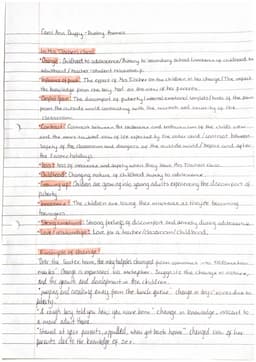 Carol Ann Duffy - Poetry Annals
In Mrs Tilscher's Class
*Change: Childhood to adolescence / Primary to secondary school / innocence of childhood to
adulthood / teacher - student relationship.
The effect of Mrs Tilscher on the children in her charge / The impact
the knowledge from the boy had on the view of her parents.
*Conflict / fear: The discomfort of puberty / internal emotional conflict / threat of the pain
from the outside world contrasting with the warmth and security of the
classroom.
*Contrast: Contrast between the and enthusiasm of the child's view
and the more view of life expected by the older child / contrast between the
safety of the classroom and dangers of the outside world / before and after
the summer holidays
*Loss: loss of innocence and safety when they leave Mrs Tilscher's class.
*Childhood: Changing nature of childhood being to adolescence.
*Growing up: Children are growing into young adults experiencing the discomfort of
puberty.
*Innocence: The children are losing their innocence as they're becoming
teenagers.
*Strong emotions: Strong feelings of discomfort and anxiety during adolescence.
*Love / relationships: Love for a teacher / classroom / childhood.
Examples of change:
"Over the Easter term, the inky tadpoles changed from commas into exclamation
marks" change is expressed via metaphor. Suggests the change in nature,
and the growth and development in the children.
"jumping and croaking away from the lunch queue" change in boys' voices due to
puberty.
"A rough boy told you how you were born" change in knowledge, innocent to
a more adult theme.
"stared at your parents, appalled, when you got back home" changed view of her
parents due to the knowledge of sex.